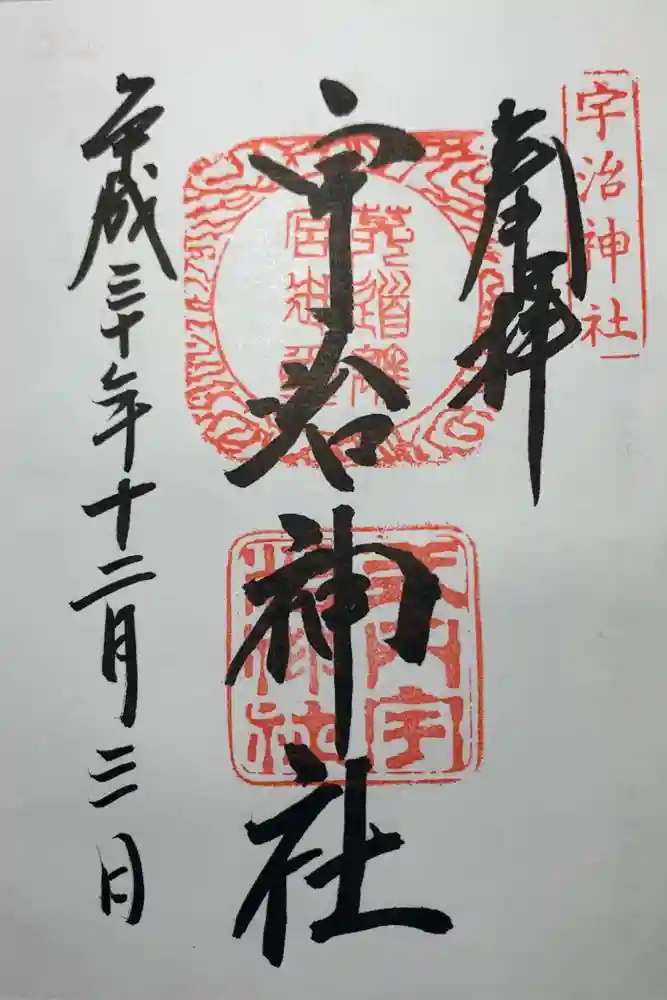 宇治神社
奉拝
宇治神社
式内宇
治神社
平成三十年十二月三日